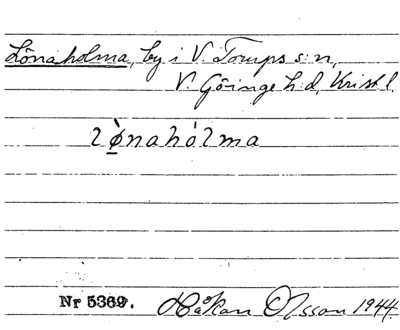 Lönaholma, by i V. Torups s:n,
V. Göinge h:d, Krist. l.
lø̀nahólma
Nr 5369. Håkan Olsson 1944.